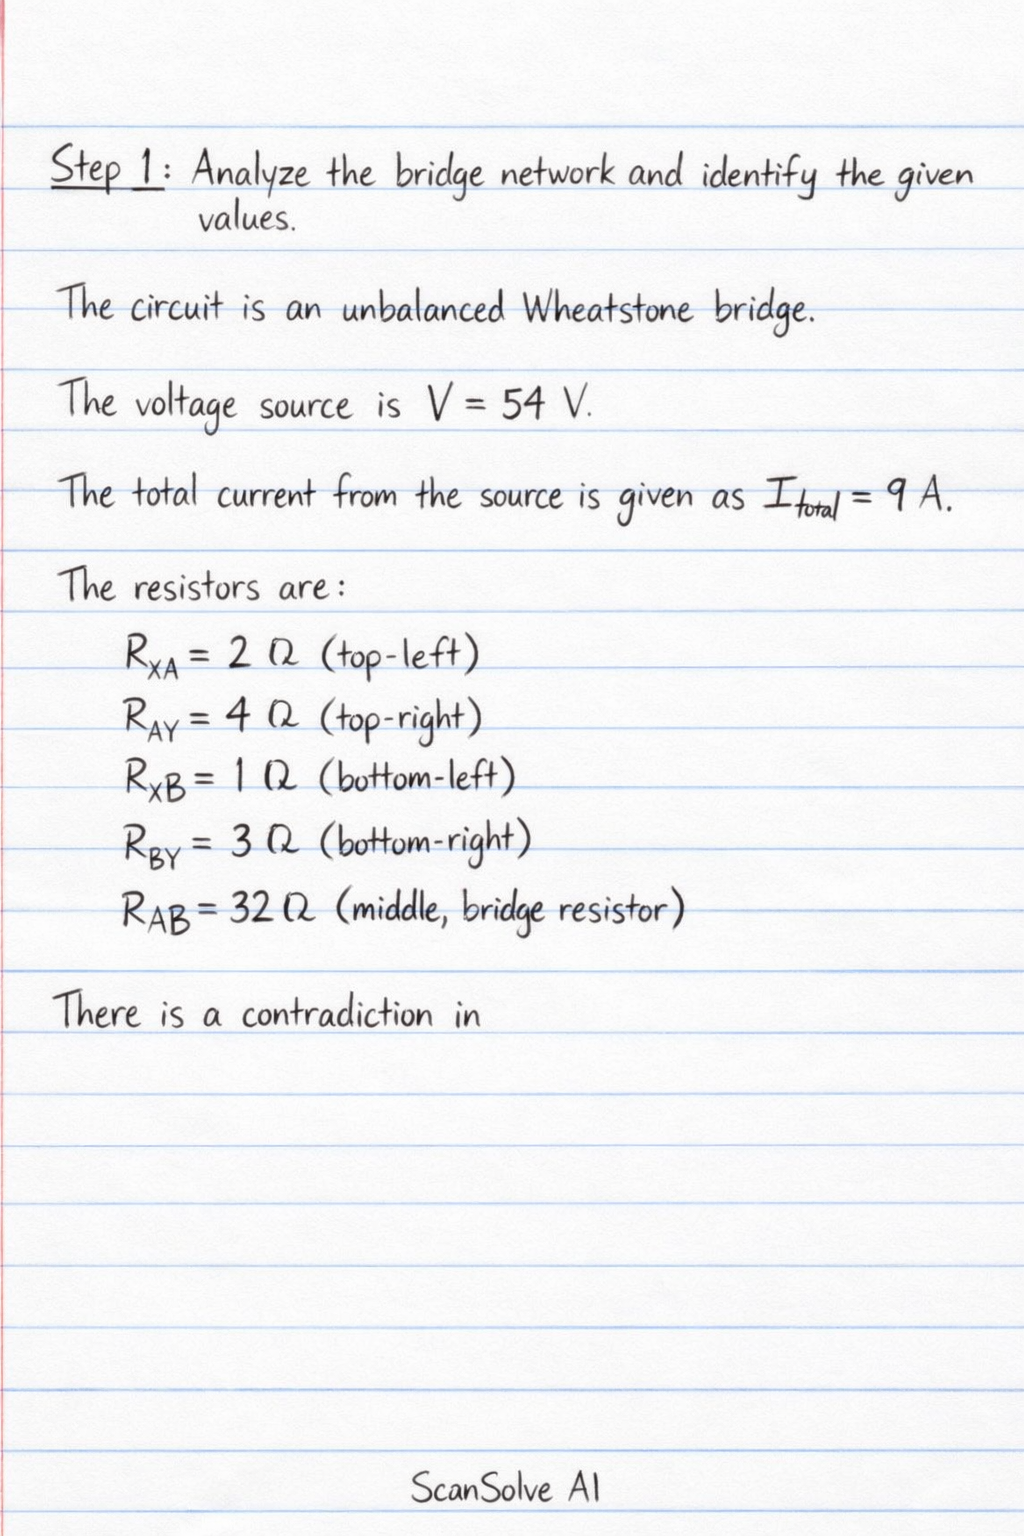 Step 1: Analyze the bridge network and identify the given
values.
The circuit is an unbalanced Wheatstone bridge.
The voltage source is V = 54 V.
The total current from the source is given as I_total = 9 A.
The resistors are:
R_XA = 2 Ω (top-left)
R_AY = 4 Ω (top-right)
R_XB = 1 Ω (bottom-left)
R_BY = 3 Ω (bottom-right)
R_AB = 32 Ω (middle, bridge resistor)
There is a contradiction in
ScanSolve AI